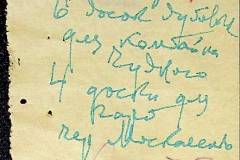 6 досок дубовых
для комбайна
Чудного
4 доски для
каро
чер Москаленко